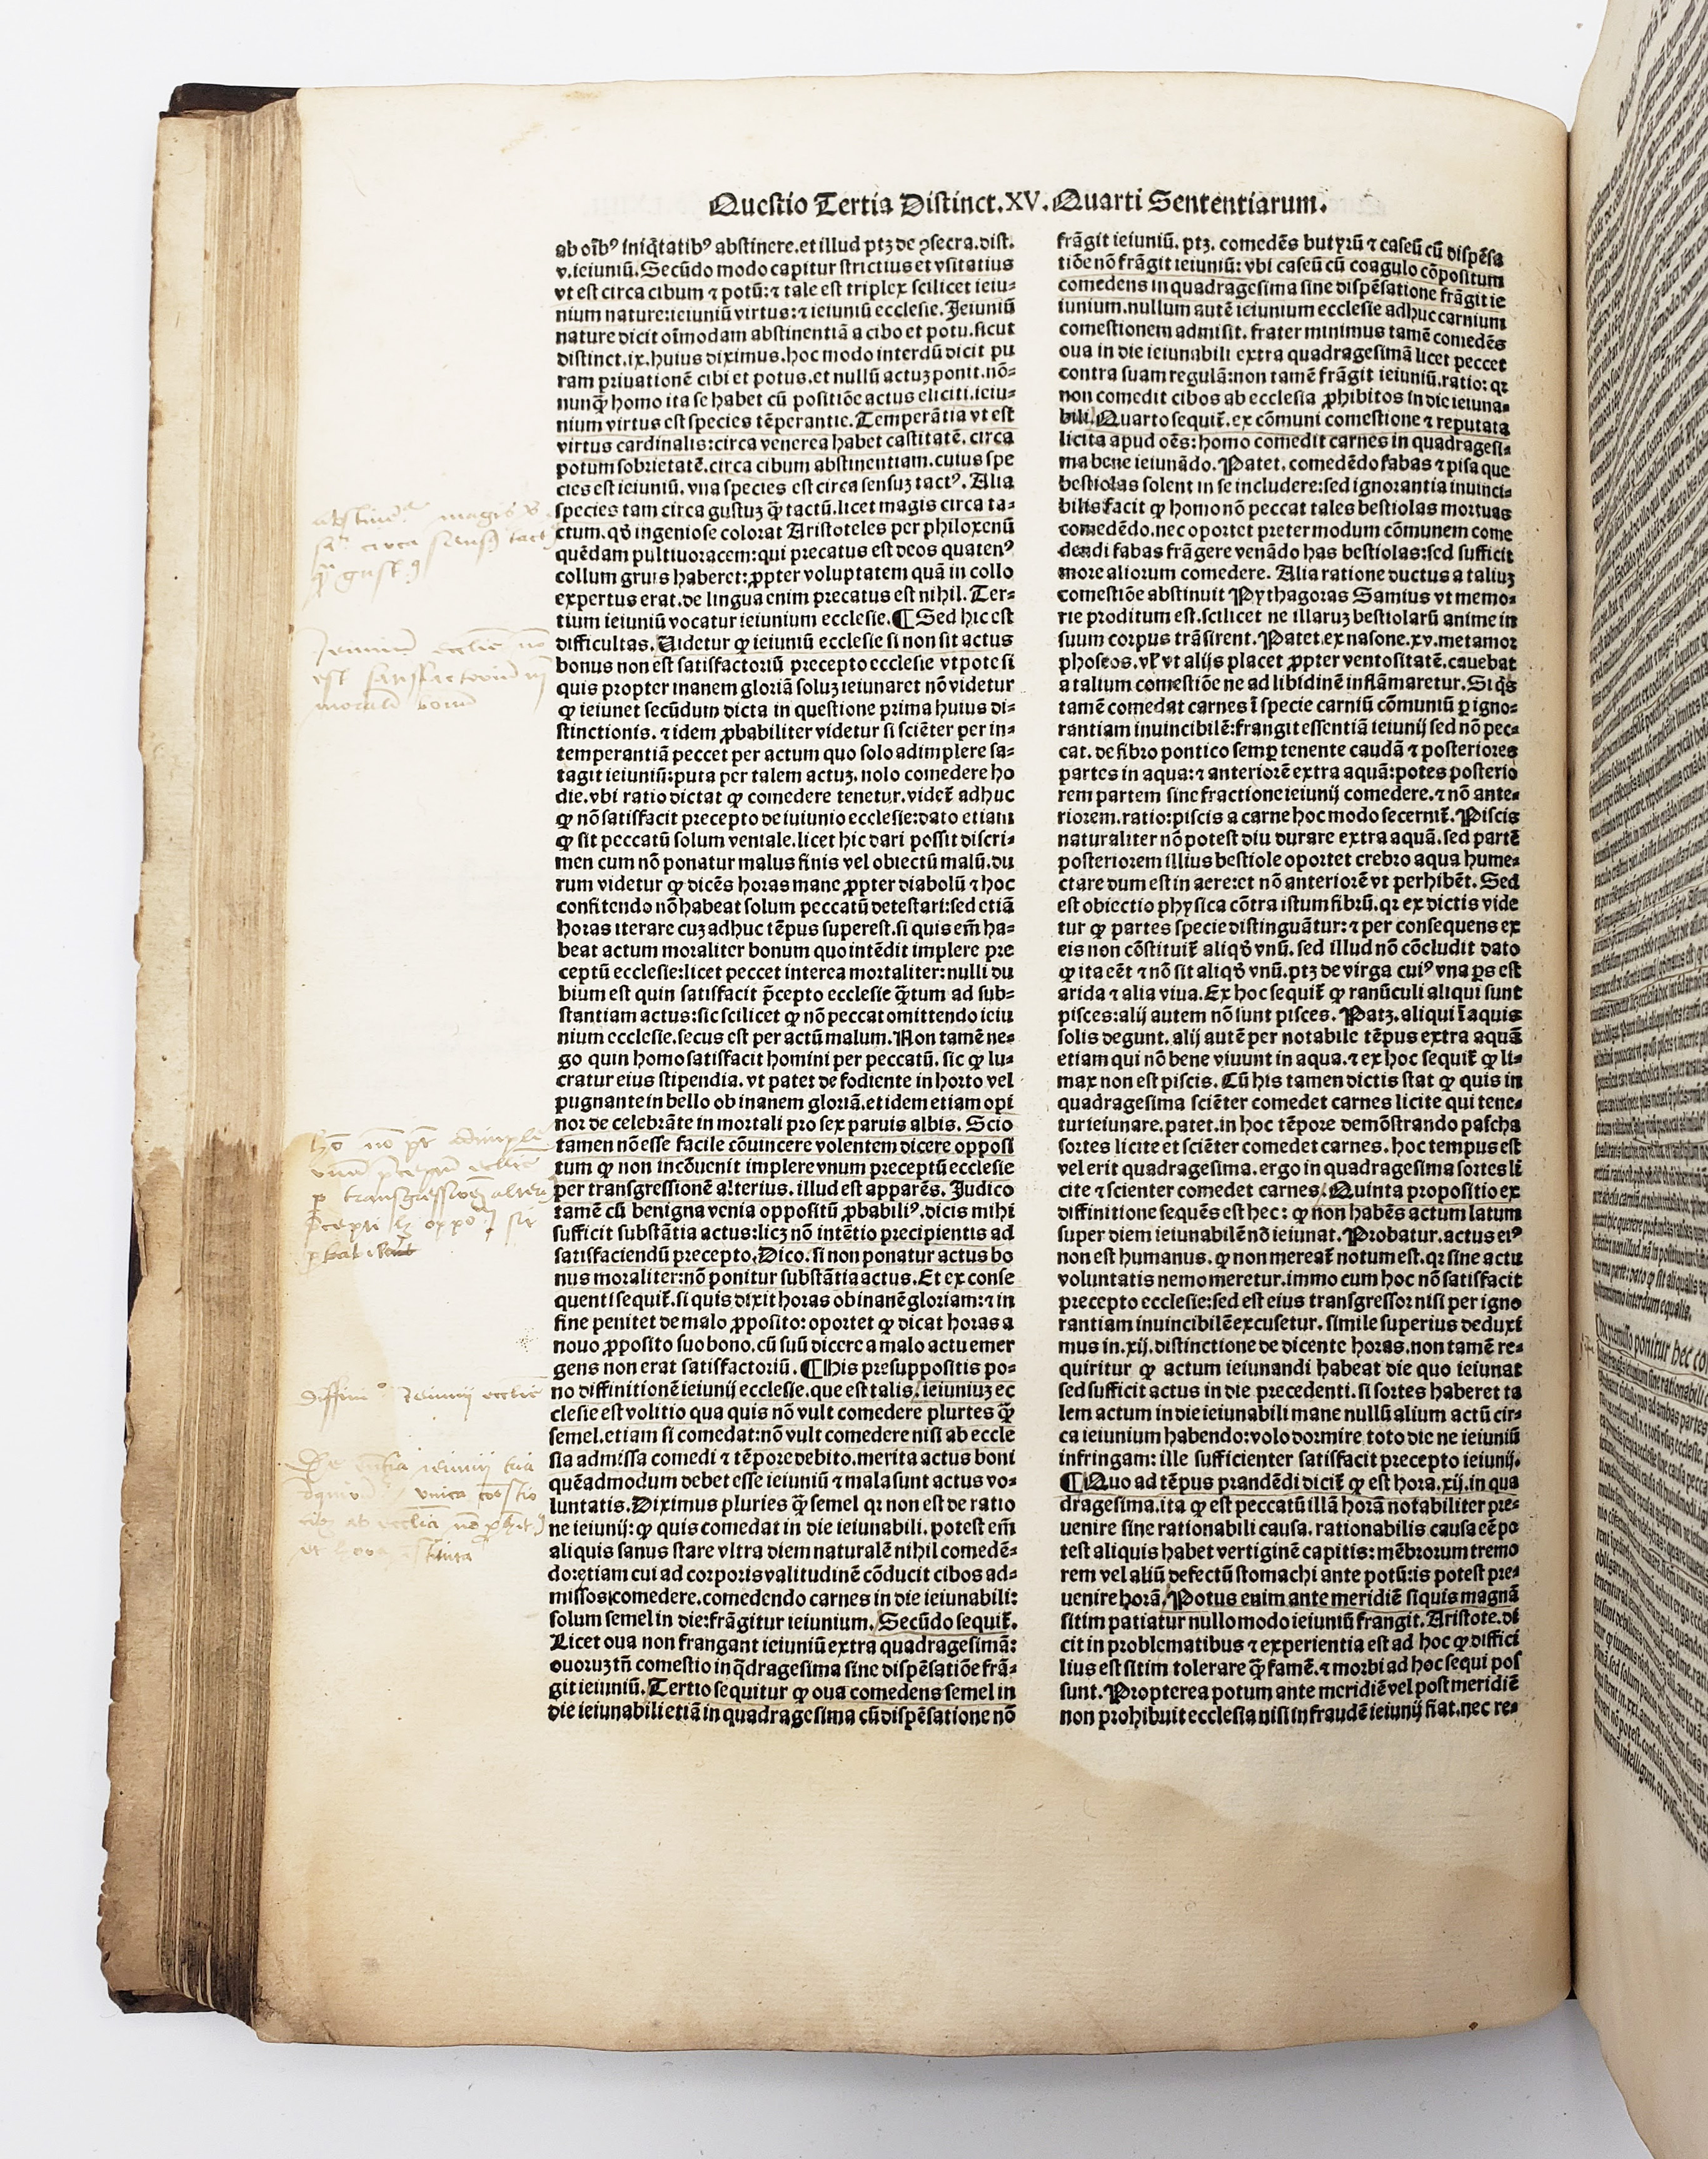 Questio Tertia Distinct.XV.Quarti Sententiarum.
ab oĩbꝰ iniq̃tatibꝰ abstinere.et illud ptꝫ de ↄsecra.dist.
v.ieiuniũ.Secũdo modo capitur strictius et vsitatius
vt est circa cibum ⁊ potũ:⁊ tale est triplex scilicet ieiu⸗
nium nature:ieiuniũ virtus:⁊ ieiuniũ ecclesie.Jeiuniũ
nature dicit oĩmodam abstinentiã a cibo et potu.sicut
distinct.ix.huius diximus.hoc modo interdũ dicit pu
ram priuationẽ cibi et potus.et nullũ actuꝫ ponit.nõ⸗
nunq̃ homo ita se habet cũ positiõe actus eliciti.ieiu⸗
nium virtus est species tẽperantie.Temperãtia vt est
virtus cardinalis:circa venerea habet castitatẽ.circa
potum sobrietatẽ.circa cibum abstinentiam.cuius spe
cies est ieiuniũ.vna species est circa sensuꝫ tactꝰ.Alia
species tam circa gustuꝫ q̃ tactũ.licet magis circa ta⸗
ctum.qđ ingeniose colorat Aristoteles per philoxenũ
quẽdam pultiuoracem:qui precatus est deos quatenꝰ
collum gruis haberet:ꝓpter voluptatem quã in collo
expertus erat.de lingua enim precatus est nihil.Ter⸗
tium ieiuniũ vocatur ieiunium ecclesie.¶Sed hic est
difficultas.Uidetur ꝙ ieiuniũ ecclesie si non sit actus
bonus non est satisfactoriũ precepto ecclesie vtpote si
quis propter inanem gloriã soluꝫ ieiunaret nõ videtur
ꝙ ieiunet secũdum dicta in questione prima huius di⸗
stinctionis.⁊ idem ꝓbabiliter videtur si sciẽter per in⸗
temperantiã peccet per actum quo solo adimplere sa⸗
tagit ieiuniũ:puta per talem actuꝫ.nolo comedere ho
die.vbi ratio dictat ꝙ comedere tenetur.videt̃ adhuc
ꝙ nõ satisfacit precepto de iuiunio ecclesie:dato etiam
ꝙ sit peccatũ solum veniale.licet hic dari possit discri⸗
men cum nõ ponatur malus finis vel obiectũ malũ.du
rum videtur ꝙ dicẽs horas mane ꝓpter diabolũ ⁊ hoc
confitendo nõ habeat solum peccatũ detestari:sed etiã
horas iterare cuꝫ adhuc tẽpus superest.si quis em̃ ha⸗
beat actum moraliter bonum quo intẽdit implere pre
ceptũ ecclesie:licet peccet interea mortaliter:nulli du
bium est quin satisfacit p̃cepto ecclesie q̃tum ad sub⸗
stantiam actus:sic scilicet ꝙ nõ peccat omittendo ieiu
nium ecclesie.secus est per actũ malum.Non tamẽ ne⸗
go quin homo satisfacit homini per peccatũ.sic ꝙ lu⸗
cratur eius stipendia.vt patet de fodiente in horto vel
pugnante in bello ob inanem gloriã.et idem etiam opi
nor de celebrãte in mortali pro sex paruis albis.Scio
tamen nõ esse facile cõuincere volentem dicere opposi
tum ꝙ non incõuenit implere vnum preceptũ ecclesie
per transgressionẽ alterius.illud est apparẽs.Judico
tamẽ cũ benigna venia oppositũ ꝓbabiliꝰ.dicis mihi
sufficit substãtia actus:licꝫ nõ intẽtio precipientis ad
satisfaciendũ precepto.Dico.si non ponatur actus bo
nus moraliter:nõ ponitur substãtia actus.Et ex conse
quenti sequit̃.si quis dixit horas ob inanẽ gloriam:⁊ in
fine penitet de malo ꝓposito:oportet ꝙ dicat horas a
nouo ꝓposito suo bono.cũ suũ dicere a malo actu emer
gens non erat satisfactoriũ.¶His presuppositis po⸗
no diffinitionẽ ieiunij ecclesie.que est talis.ieiuniuꝫ ec
clesie est volitio qua quis nõ vult comedere plurtes q̃
semel.etiam si comedat:nõ vult comedere nisi ab eccle
sia admissa comedi ⁊ tẽpore debito.merita actus boni
quẽadmodum debet esse ieiuniũ ⁊ mala sunt actus vo⸗
luntatis.Diximus pluries q̃ semel qꝛ non est de ratio
ne ieiunij:ꝙ quis comedat in die ieiunabili.potest em̃
aliquis sanus stare vltra diem naturalẽ nihil comedẽ⸗
do:etiam cui ad corporis valitudinẽ cõducit cibos ad⸗
missos comedere.comedendo carnes in die ieiunabili:
solum semel in die:frãgitur ieiunium.Secũdo sequit̃.
Licet oua non frangant ieiuniũ extra quadragesimã:
ouoruꝫ tñ comestio in q̃dragesima sine dispẽsatiõe frã⸗
git ieiuniũ.Tertio sequitur ꝙ oua comedens semel in
die ieiunabili etiã in quadragesima cũ dispẽsatione nõ
frãgit ieiuniũ.ptꝫ.comedẽs butyrũ ⁊ caseũ cũ dispẽsa
tiõe nõ frãgit ieiuniũ:vbi caseũ cũ coagulo cõpositum
comedens in quadragesima sine dispẽsatione frãgit ie
iunium.nullum autẽ ieiunium ecclesie adhuc carnium
comestionem admisit.frater minimus tamẽ comedẽs
oua in die ieiunabili extra quadragesimã licet peccet
contra suam regulã:non tamẽ frãgit ieiuniũ.ratio:qꝛ
non comedit cibos ab ecclesia ꝓhibitos in die ieiuna⸗
bili.Quarto sequit̃.ex cõmuni comestione ⁊ reputata
licita apud oẽs:homo comedit carnes in quadragesi⸗
ma bene ieiunãdo.Patet.comedẽdo fabas ⁊ pisa que
bestiolas solent in se includere:sed ignorantia inuinci⸗
bilis facit ꝙ homo nõ peccat tales bestiolas mortuas
comedẽdo.nec oportet preter modum cõmunem come
dendi fabas frãgere venãdo has bestiolas:sed sufficit
more aliorum comedere. Alia ratione ductus a taliuꝫ
comestiõe abstinuit Pythagoras Samius vt memo⸗
rie proditum est.scilicet ne illaruꝫ bestiolarũ anime in
suum corpus trãsirent.Patet.ex nasone.xv.metamor
phoseos.vel̃ vt alijs placet ꝓpter ventositatẽ.cauebat
a talium comestiõe ne ad libidinẽ inflãmaretur.Si q̃s
tamẽ comedat carnes ĩ specie carniũ cõmuniũ ꝑ igno⸗
rantiam inuincibilẽ:frangit essentiã ieiunij sed nõ pec⸗
cat.de fibro pontico semꝑ tenente caudã ⁊ posteriores
partes in aqua:⁊ anteriorẽ extra aquã:potes posterio
rem partem sine fractione ieiunij comedere.⁊ nõ ante⸗
riorem.ratio:piscis a carne hoc modo secernit̃.Piscis
naturaliter nõ potest diu durare extra aquã.sed partẽ
posteriorem illius bestiole oportet crebro aqua hume⸗
ctare dum est in aere:et nõ anteriorẽ vt perhibẽt.Sed
est obiectio physica cõtra istum fibrũ.qꝛ ex dictis vide
tur ꝙ partes specie distinguãtur:⁊ per consequens ex
eis non cõstituit̃ aliqđ vnũ.sed illud nõ cõcludit dato
ꝙ ita eẽt ⁊ nõ sit aliqđ vnũ.ptꝫ de virga cuiꝰ vna ꝑs est
arida ⁊ alia viua.Ex hoc sequit̃ ꝙ ranũculi aliqui sunt
pisces:alij autem nõ sunt pisces. Patꝫ.aliqui ĩ aquis
solis degunt.alij autẽ per notabile tẽpus extra aquã
etiam qui nõ bene viuunt in aqua.⁊ ex hoc sequit̃ ꝙ li⸗
max non est piscis.Cũ his tamen dictis stat ꝙ quis in
quadragesima sciẽter comedet carnes licite qui tene⸗
tur ieiunare.patet.in hoc tẽpore demõstrando pascha
sortes licite et sciẽter comedet carnes.hoc tempus est
vel erit quadragesima.ergo in quadragesima sortes li
cite ⁊ scienter comedet carnes.Quinta propositio ex
diffinitione sequẽs est hec:ꝙ non habẽs actum latum
super diem ieiunabilẽ nõ ieiunat.Probatur.actus eiꝰ
non est humanus.ꝙ non mereat̃ notum est.qꝛ sine actu
voluntatis nemo meretur.immo cum hoc nõ satisfacit
precepto ecclesie:sed est eius transgressor nisi per igno
rantiam inuincibilẽ excusetur.simile superius deduxi
mus in.xij.distinctione de dicente horas.non tamẽ re⸗
quiritur ꝙ actum ieiunandi habeat die quo ieiunat
sed sufficit actus in die precedenti.si sortes haberet ta
lem actum in die ieiunabili mane nullũ alium actũ cir⸗
ca ieiunium habendo:volo dormire toto die ne ieiuniũ
infringam:ille sufficienter satisfacit precepto ieiunij.
¶Quo ad tẽpus prandẽdi dicit̃ ꝙ est hora.xij.in qua
dragesima.ita ꝙ est peccatũ illã horã notabiliter pre⸗
uenire sine rationabili causa.rationabilis causa eẽ po
test aliquis habet vertiginẽ capitis:mẽbrorum tremo
rem vel aliũ defectũ stomachi ante potũ:is potest pre⸗
uenire horã.Potus enim ante meridiẽ si quis magnã
sitim patiatur nullo modo ieiuniũ frangit.Aristote.di
cit in problematibus ⁊ experientia est ad hoc ꝙ diffici
lius est sitim tolerare q̃ famẽ.⁊ morbi ad hoc sequi pos
sunt.Propterea potum ante meridiẽ vel post meridiẽ
non prohibuit ecclesia nisi in fraudẽ ieiunij fiat.nec re⸗